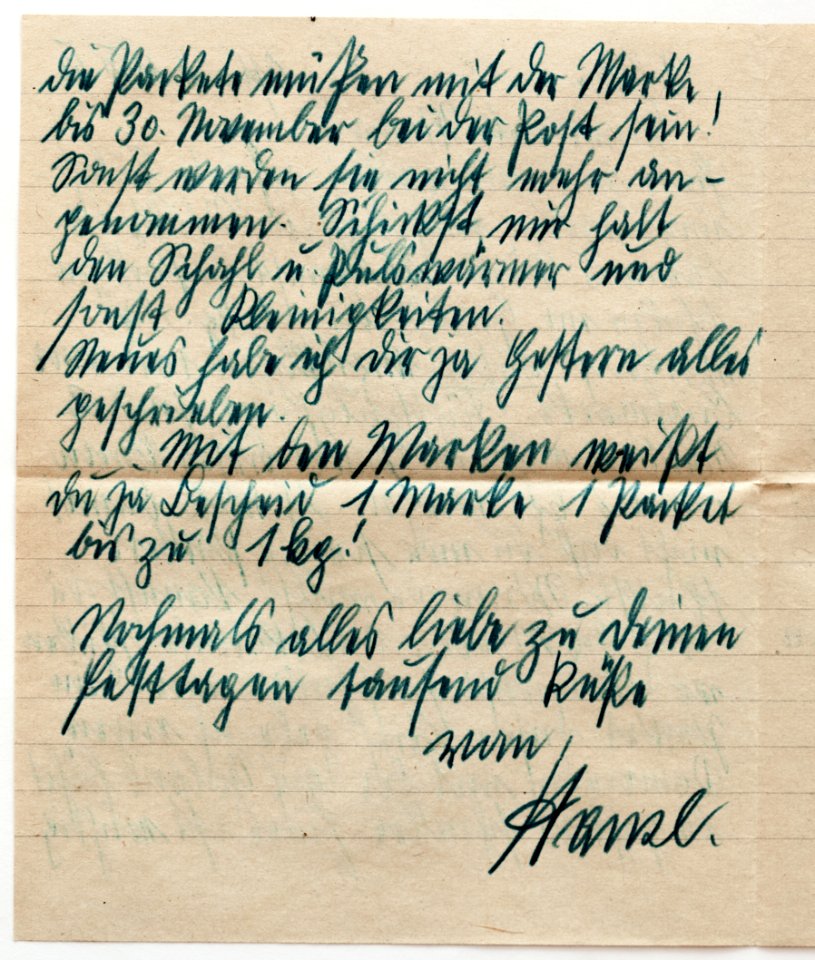 die Packete müßen mit der Marke
bis 30. November bei der Post sein!
Sonst werden sie nicht mehr an-
genommen. Schickst mir halt
den Schahl u. Pulswärmer und
sonst Kleinigkeiten.
Neues habe ich dir ja Gestern alles
geschrieben.
Mit den Marken weißt
du ja Bescheid 1 Marke 1 Packet
bis zu 1 kg!
Nochmals alles liebe zu deinen
Festtagen tausend Küße
von
Hansl.